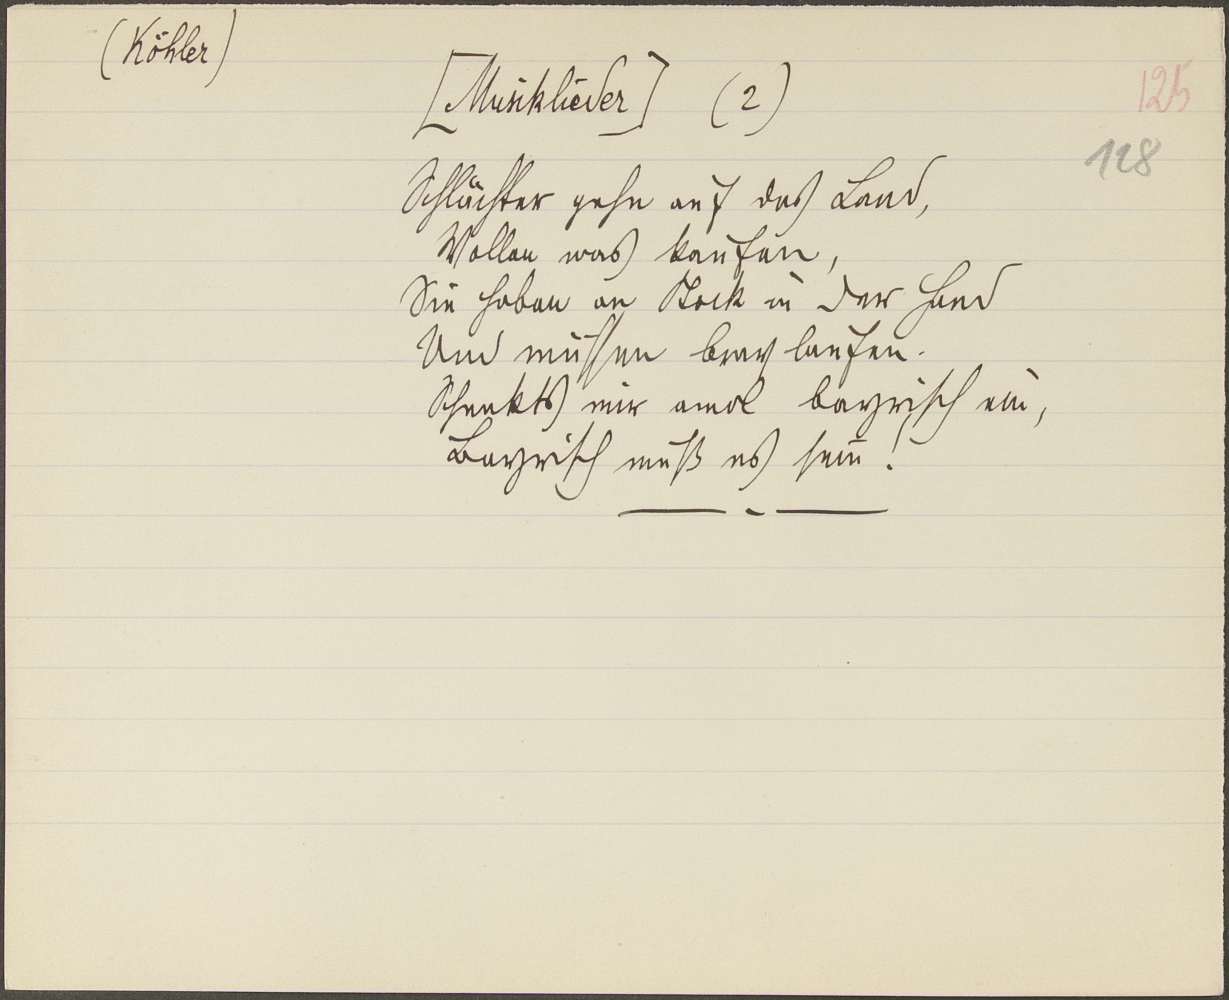 (Köhler)
[Musiklieder] (2)
125
128
Schlächter gehn auf das Land,
Wollen was kaufen,
Sie haben an Stock in der Hand
Und müssen brav laufen.
Schenkts mir amol bayrisch ein,
Bayrisch muß es sein!